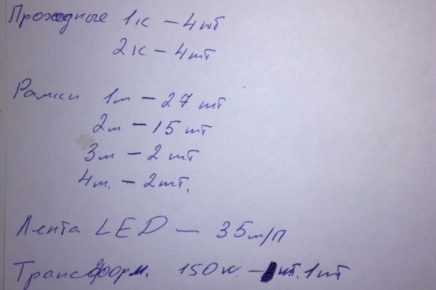 Проходные 1к - 4шт
2к - 4шт
Рамки 1м - 27 шт
2м - 15 шт
3м - 2 шт
4м. - 2шт.
Лента LED - 35м/п
Трансформ. 150w - 1шт